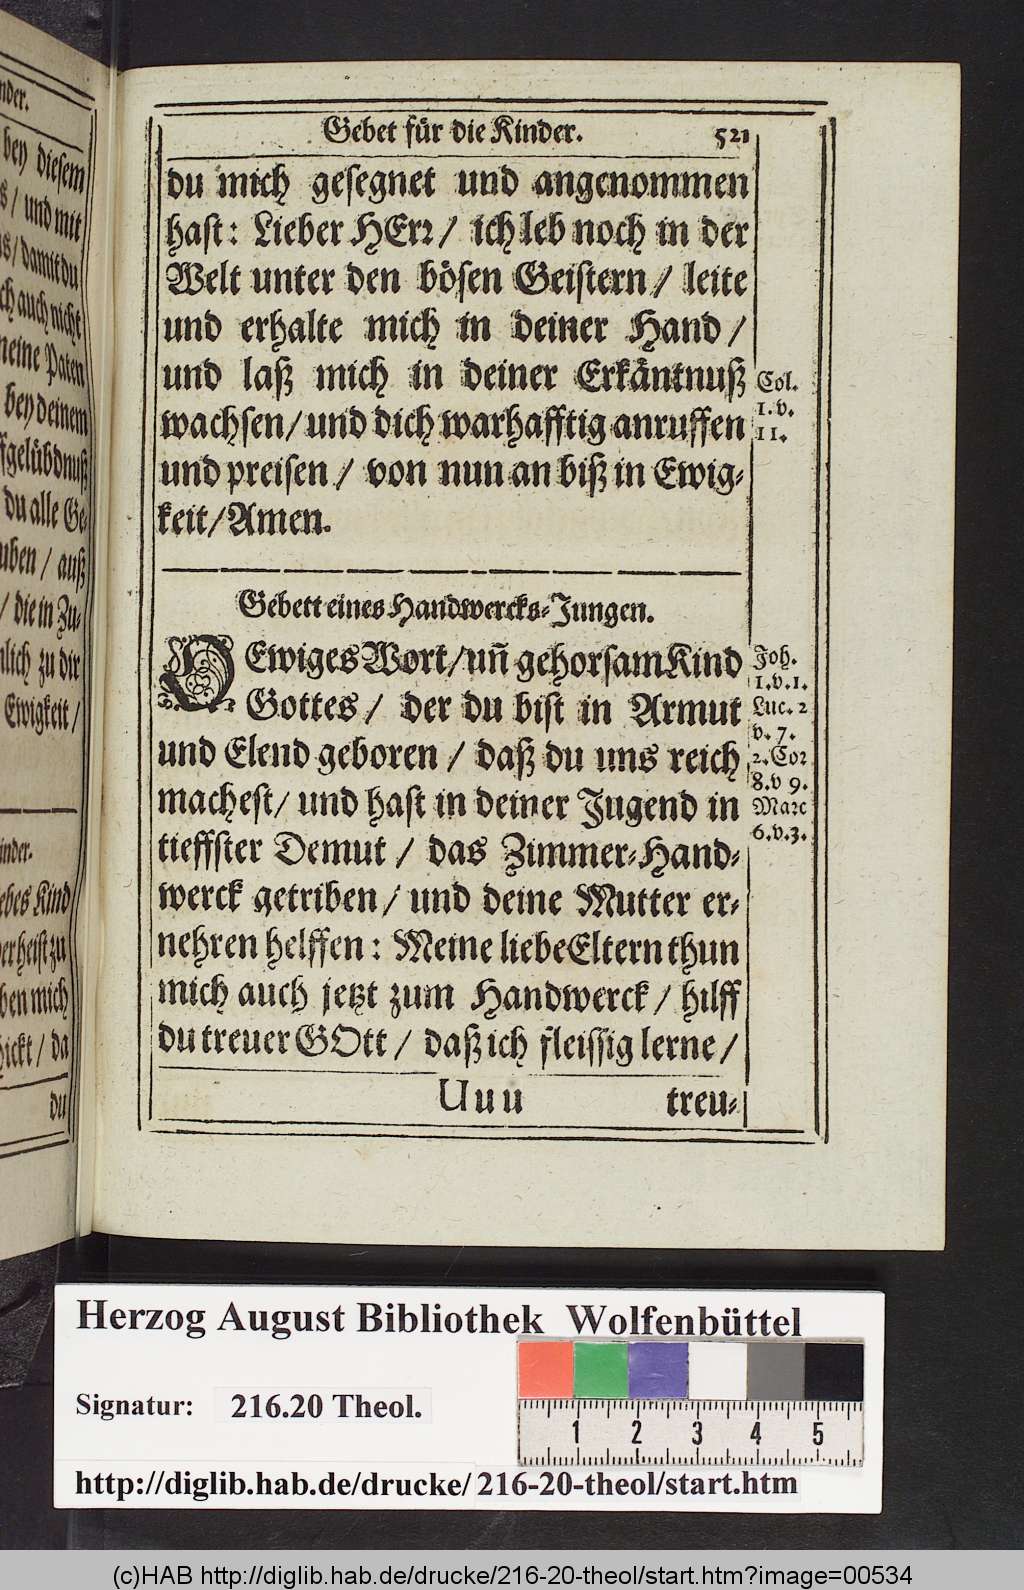 nder.
bey diesem
s / und mit
s/ damit du
ch auch nicht
neine Paten
bey deinem
ffgelübdnuß
du alle Ge-
uben / auß
/ die in Zu-
nlich zu dir
Ewigkeit /
inder.
ebes Kind
er heist zu
ben mich
hickt / da
du
Gebet für die Kinder. 521
du mich gesegnet und angenommen
hast: Lieber HErr / ich leb noch in der
Welt unter den bösen Geistern / leite
und erhalte mich in deiner Hand /
und laß mich in deiner Erkäntnuß
wachsen / und dich warhafftig anruffen
und preisen / von nun an biß in Ewig-
keit / Amen.
Col.
1. v.
11.
Gebett eines Handwercks-Jungen.
O Ewiges Wort / uñ gehorsam Kind
Gottes / der du bist in Armut
und Elend geboren / daß du uns reich
machest / und hast in deiner Jugend in
tieffster Demut / das Zimmer-Hand-
werck getriben / und deine Mutter er-
nehren helffen: Meine liebe Eltern thun
mich auch jetzt zum Handwerck / hilff
du treuer GOtt / daß ich fleissig lerne /
Joh.
1. v. 1.
Luc. 2
v. 7.
2. Cor
8. v 9.
Marc
6. v. 3.
Uuu treu-
Herzog August Bibliothek Wolfenbüttel
Signatur: 216.20 Theol.
1 2 3 4 5
http://diglib.hab.de/drucke/216-20-theol/start.htm
(c)HAB http://diglib.hab.de/drucke/216-20-theol/start.htm?image=00534